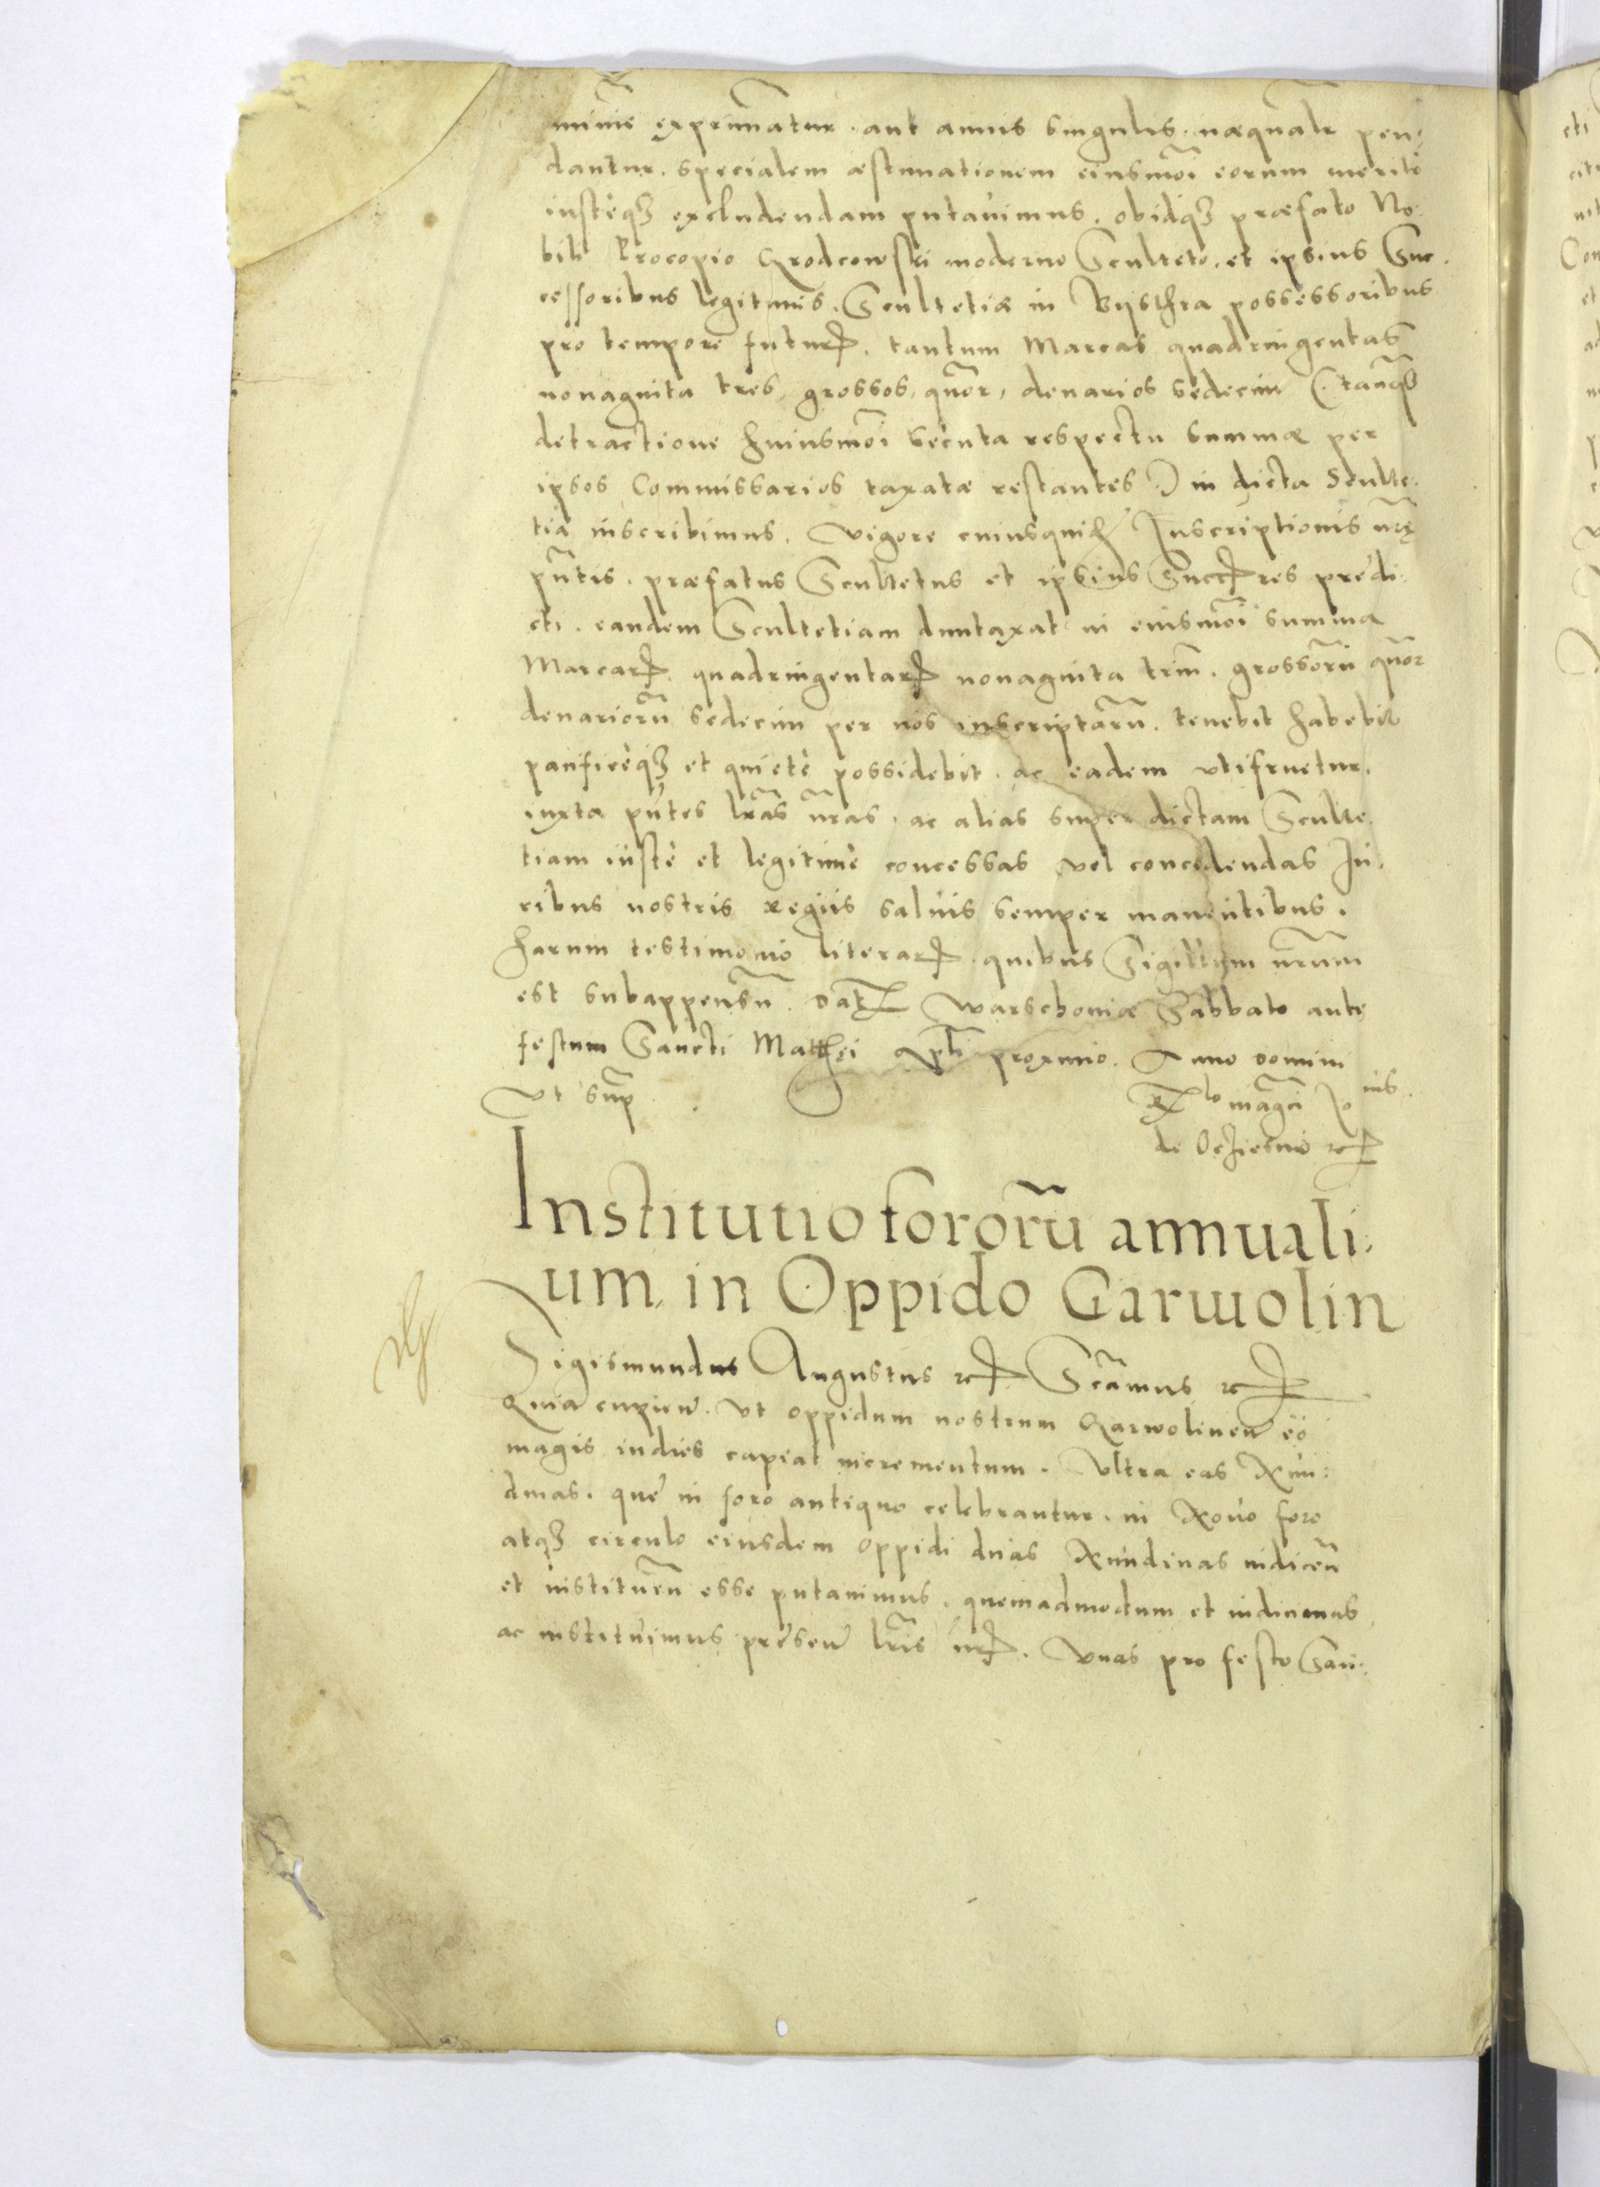 minime exprimatur. aut annis singulis. inæquale pen:
dantur. specialem æstimationem eiusmōi eorum meritò
iustèq₃ excludendam putauimus. obidq₃ præfato No:
bili Procopio Grodcowski moderno Sculteto. et ipsius Suc:
cessoribus legitimis. Scultetiæ in Bysthra possessoribus
pro tempore futuꝝ. tantum Marcas quadringentas
nonaginta tres, grossos, quōr, denarios sedecim (tanq̄
detractione huiusmōi secuta respectu summæ per
ipsos Commissarios taxatæ restantes) in dicta Sculte:
tia inscribimus. Vigore cuiusquid Inscriptionis nr̄ę
pn̄tis. præfatus Scultetus et ipsius Succ̄res predi:
cti. eandem Scultetiam duntaxat in eiusmōi summa
Marcaꝝ quadringentaꝝ nonaginta triū. grossorū quōr
denariorū sedecim per nos inscriptarū. tenebit habebit
pacificèq₃ et quietè possidebit. ac eadem vtifruetur.
iuxta pn̄tes lr̄as nr̄as. ac alias super dictam Sculte:
tiam iustè et legitimè concessas vel concedendas Iu:
ribus nostris regiis saluis semper manentibus.
harum testimonio literaꝝ. quibus Sigillum nr̄um
est subappensū. Dat̄ Warschouiæ Sabbato ante
festum Sancti Matthęi Apl̄i proximo. Anno Domini
Vt supr̄
R͞lo mag̅ci Io nis.
de Ocziesino ꝛc̄
Institutio fororū annuali:
um in Oppido Garwolin
Sigismundus Augustus ꝛc̄ Sc̄amus ꝛc̄
Quia cupien̄. Vt oppidum nostrum Garwolinen̄ eò
magis indies capiat incrementum. Vltra eas Nun:
dinas. que in foro antiquo celebrantur. in Nouo foro
atq₃ circulo eiusdem oppidi duas Nundinas indicen̄
et instituen̄ esse putauimus. quemadmodum et indicimus
ac instituimus presen̄ lr̄is nr̄is. Vnas pro festo San: